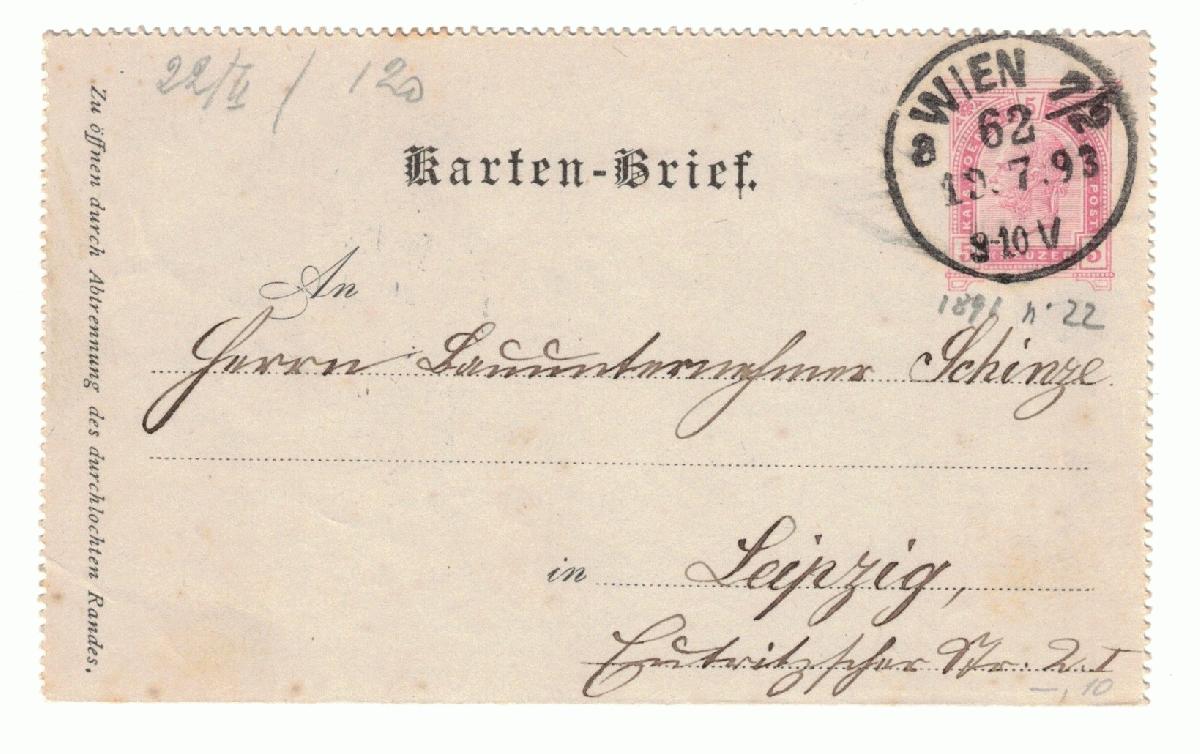 22/V / 120
WIEN 7/2
62
a
19.7.93
9-10 V
KREUZER
POST
5
5
5
Karten-Brief.
1891 n° 22
An
Herrn Bauunternehmer Schinze
in Leipzig,
Eutritzscher Str. 2. I
—, 10
Zu öffnen durch Abtrennung des durchlochten Randes.